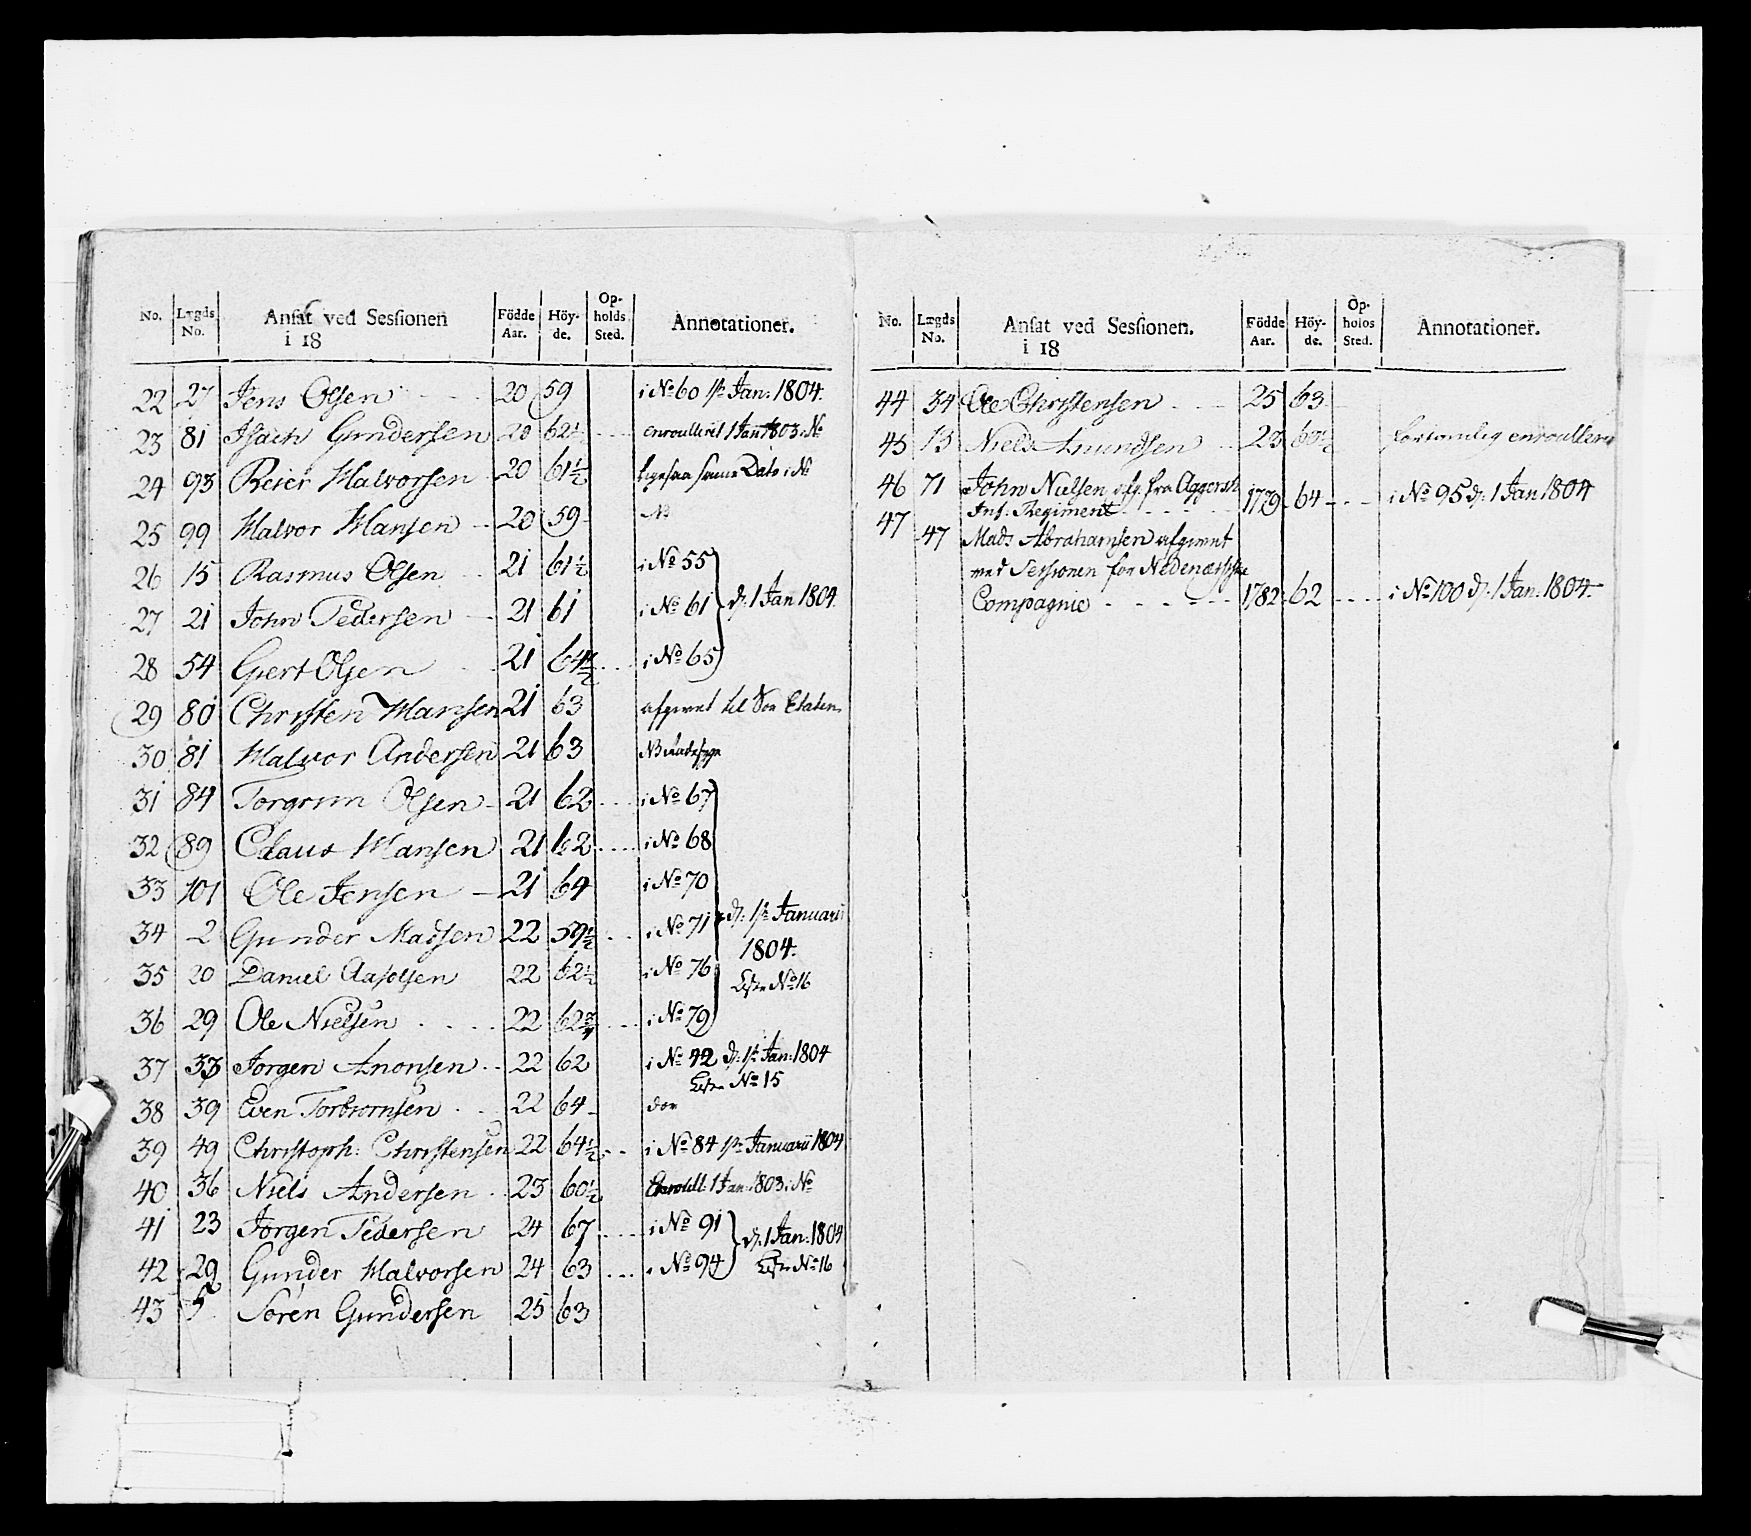 No. Lægds No. Ansat ved Sessionen i 18 Födde Aar. Höyde. Opholds Sted. Annotationer.
22 27 Jens Olsen 20 59 i No 60 1ste Jan: 1804.
23 81 Isach Gundersen 20 62½ enroulleret 1 Jan 1803 i No
24 93 Reier Halvorsen 20 61½ ligesaa samme Dato i No
25 99 Halvor Hansen 20 59
26 15 Rasmus Olsen 21 61½ i No 55
27 21 John Pedersen 21 61 i No 61 d: 1 Jan 1804.
28 54 Gjert Olsen 21 64½ i No 65
29 80 Christen Hansen 21 63 afgivet til Søe Etaten
30 81 Halvor Andersen 21 63
31 84 Torgrim Olsen 21 62 i No 67
32 89 Claus Hansen 21 62 i No 68
33 101 Ole Jensen 21 64 i No 70
34 2 Gunder Madsen 22 59½ i No 71 d: 1ste Januarii 1804.
35 20 Daniel Aasolsen 22 62½ i No 76 No 16
36 29 Ole Nielsen 22 62¾ i No 79
37 33 Jørgen Anonsen 22 62 i No 42 d: 1ste Jan: 1804
No 15
38 39 Even Torbiornsen 22 64 døe
39 49 Christoph: Christensen 22 64½ i No 84 1ste Januarii 1804
40 36 Niels Andersen 23 60½ Enroull. 1 Jan: 1803 i No
41 23 Jørgen Pedersen 24 67 i No 91 d: 1 Jan: 1804
42 29 Gunder Halvorsen 24 63 i No 94 No 16
43 5 Søren Gundersen 25 63
No. Lægds No. Ansat ved Sessionen. i 18 Födde Aar. Höyde. Opholds Sted. Annotationer.
44 34 Ole Christensen 25 63
45 13 Niels Amundsen 23 60½ enroulleret
46 71 John Nielsen afg. fra Aggersh.
Inf: Regiment 1779 64 i No 95 d: 1 Jan 1804
47 47 Mads Abrahamsen afgivet
ved Sessionen for Nedenæsiske
Compagnie 1782 62 i No 100 d: 1 Jan: 1804